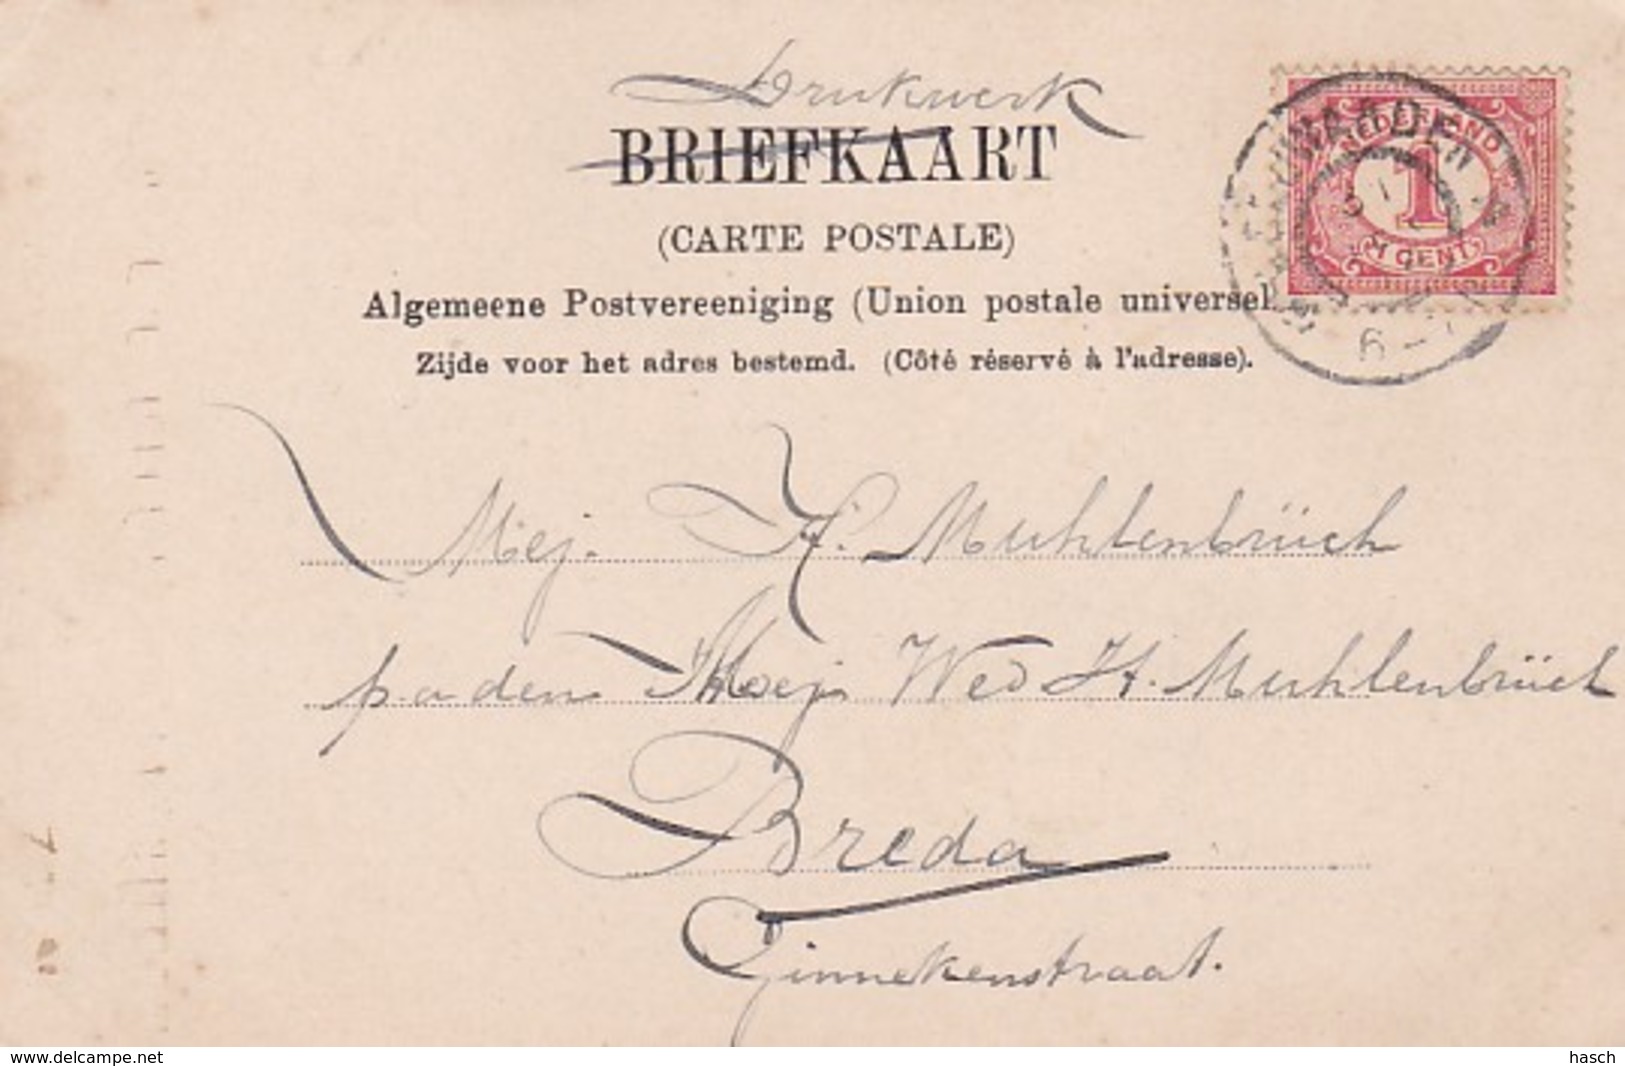 Drukwerk
BRIEFKAART
(CARTE POSTALE)
Algemeene Postvereeniging (Union postale universel
Zijde voor het adres bestemd. (Côté réservé à l'adresse).
NEDERLAND
1
CENT
6-7
Mej. H. Muhlenbrüch
p. a den Mej Wed H. Muhlenbrüch
Breda
Ginnekenstraat.
www.delcampe.net
hasch